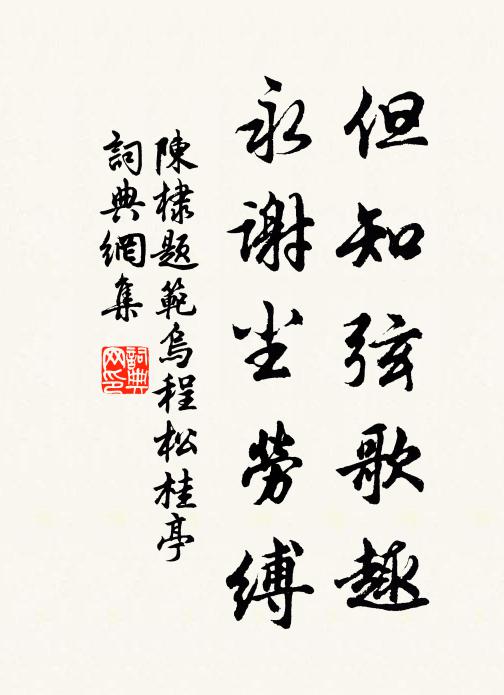 但知弦歌趣
永谢尘劳缚
陳棣题範烏程松桂亭
詞典網集
詞典
网印